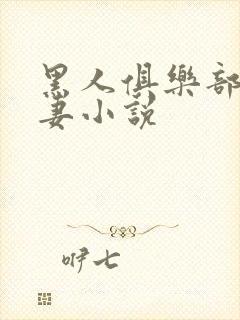 黑人俱樂部
妻小說
咿七